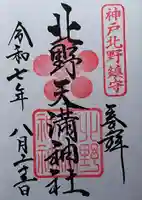 神戸北野鎮守
奉拝
北野天満神社
令和七年
八月